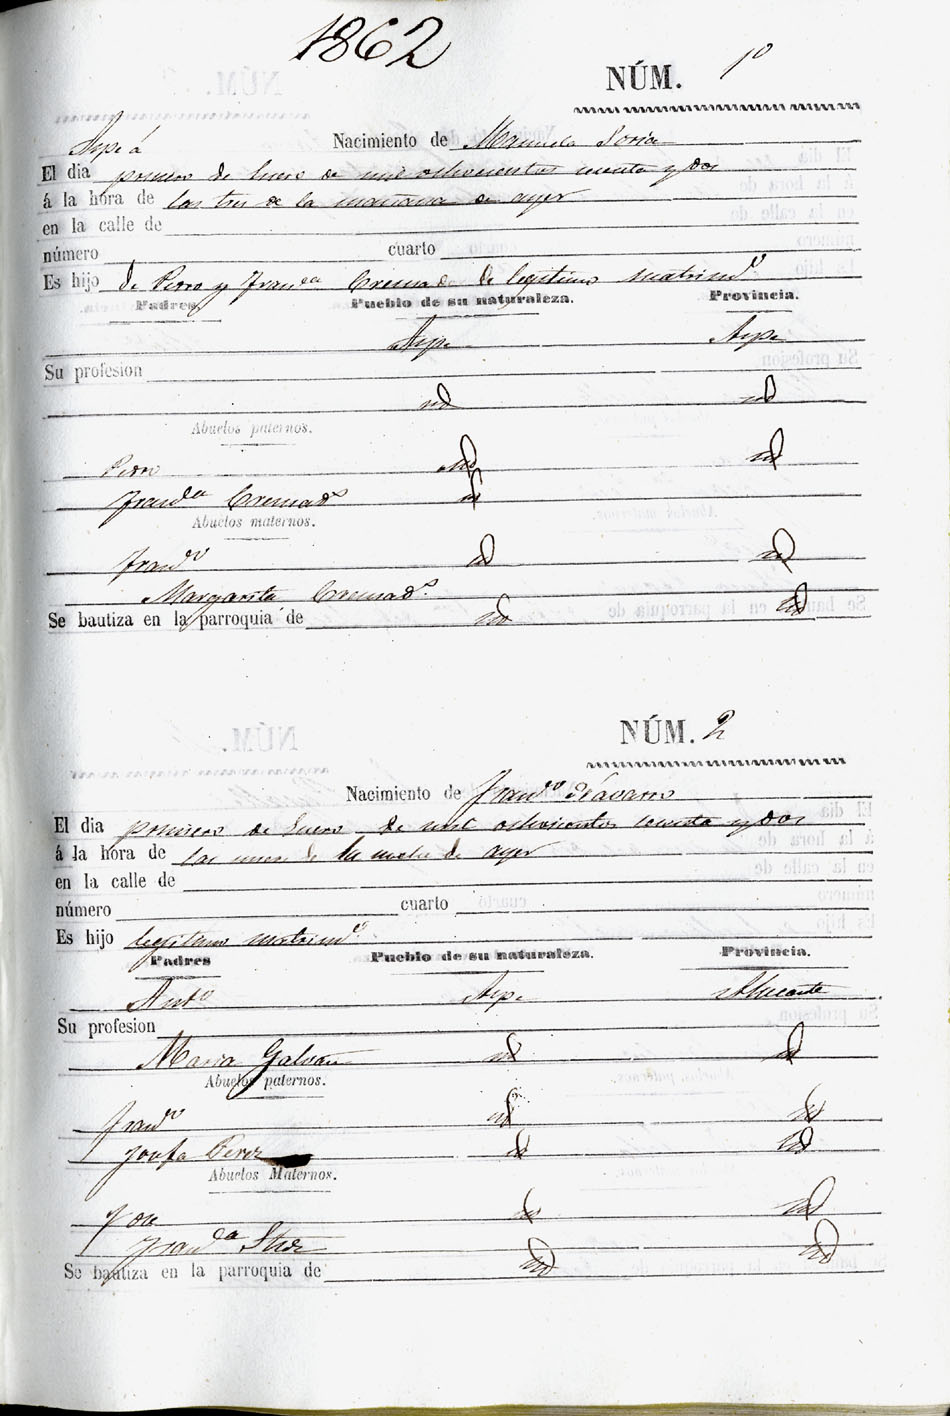 1862
NÚM. 1º
Aspe á Nacimiento de Manuela Soria
El dia primero de Enero de mil ochocientos sesenta y dos
á la hora de las tres de la mañana de ayer
en la calle de
número cuarto
Es hijo de Pedro y Franca Cremades de legitimo matrimº
Padres. Pueblo de su naturaleza. Provincia.
Aspe Aspe
Su profesion
id id
Abuelos paternos.
Pedro id id
Franca Cremads id
Abuelos maternos.
Franco id id
Margarita Cremads.
Se bautiza en la parroquia de id id
NÚM. 2
Nacimiento de Franco Navarro
El dia primero de Enero de mil ochocientos sesenta y dos
á la hora de las once de la noche de ayer
en la calle de
número cuarto
Es hijo legitimo matrimº
Padres Pueblo de su naturaleza. Provincia.
Anto Aspe Alicante
Su profesion
Maria Galvan id id
Abuelos paternos.
Franco id id
Josefa Perez id id
Abuelos Maternos.
Jose id id
Franca
Se bautiza en la parroquia de id id